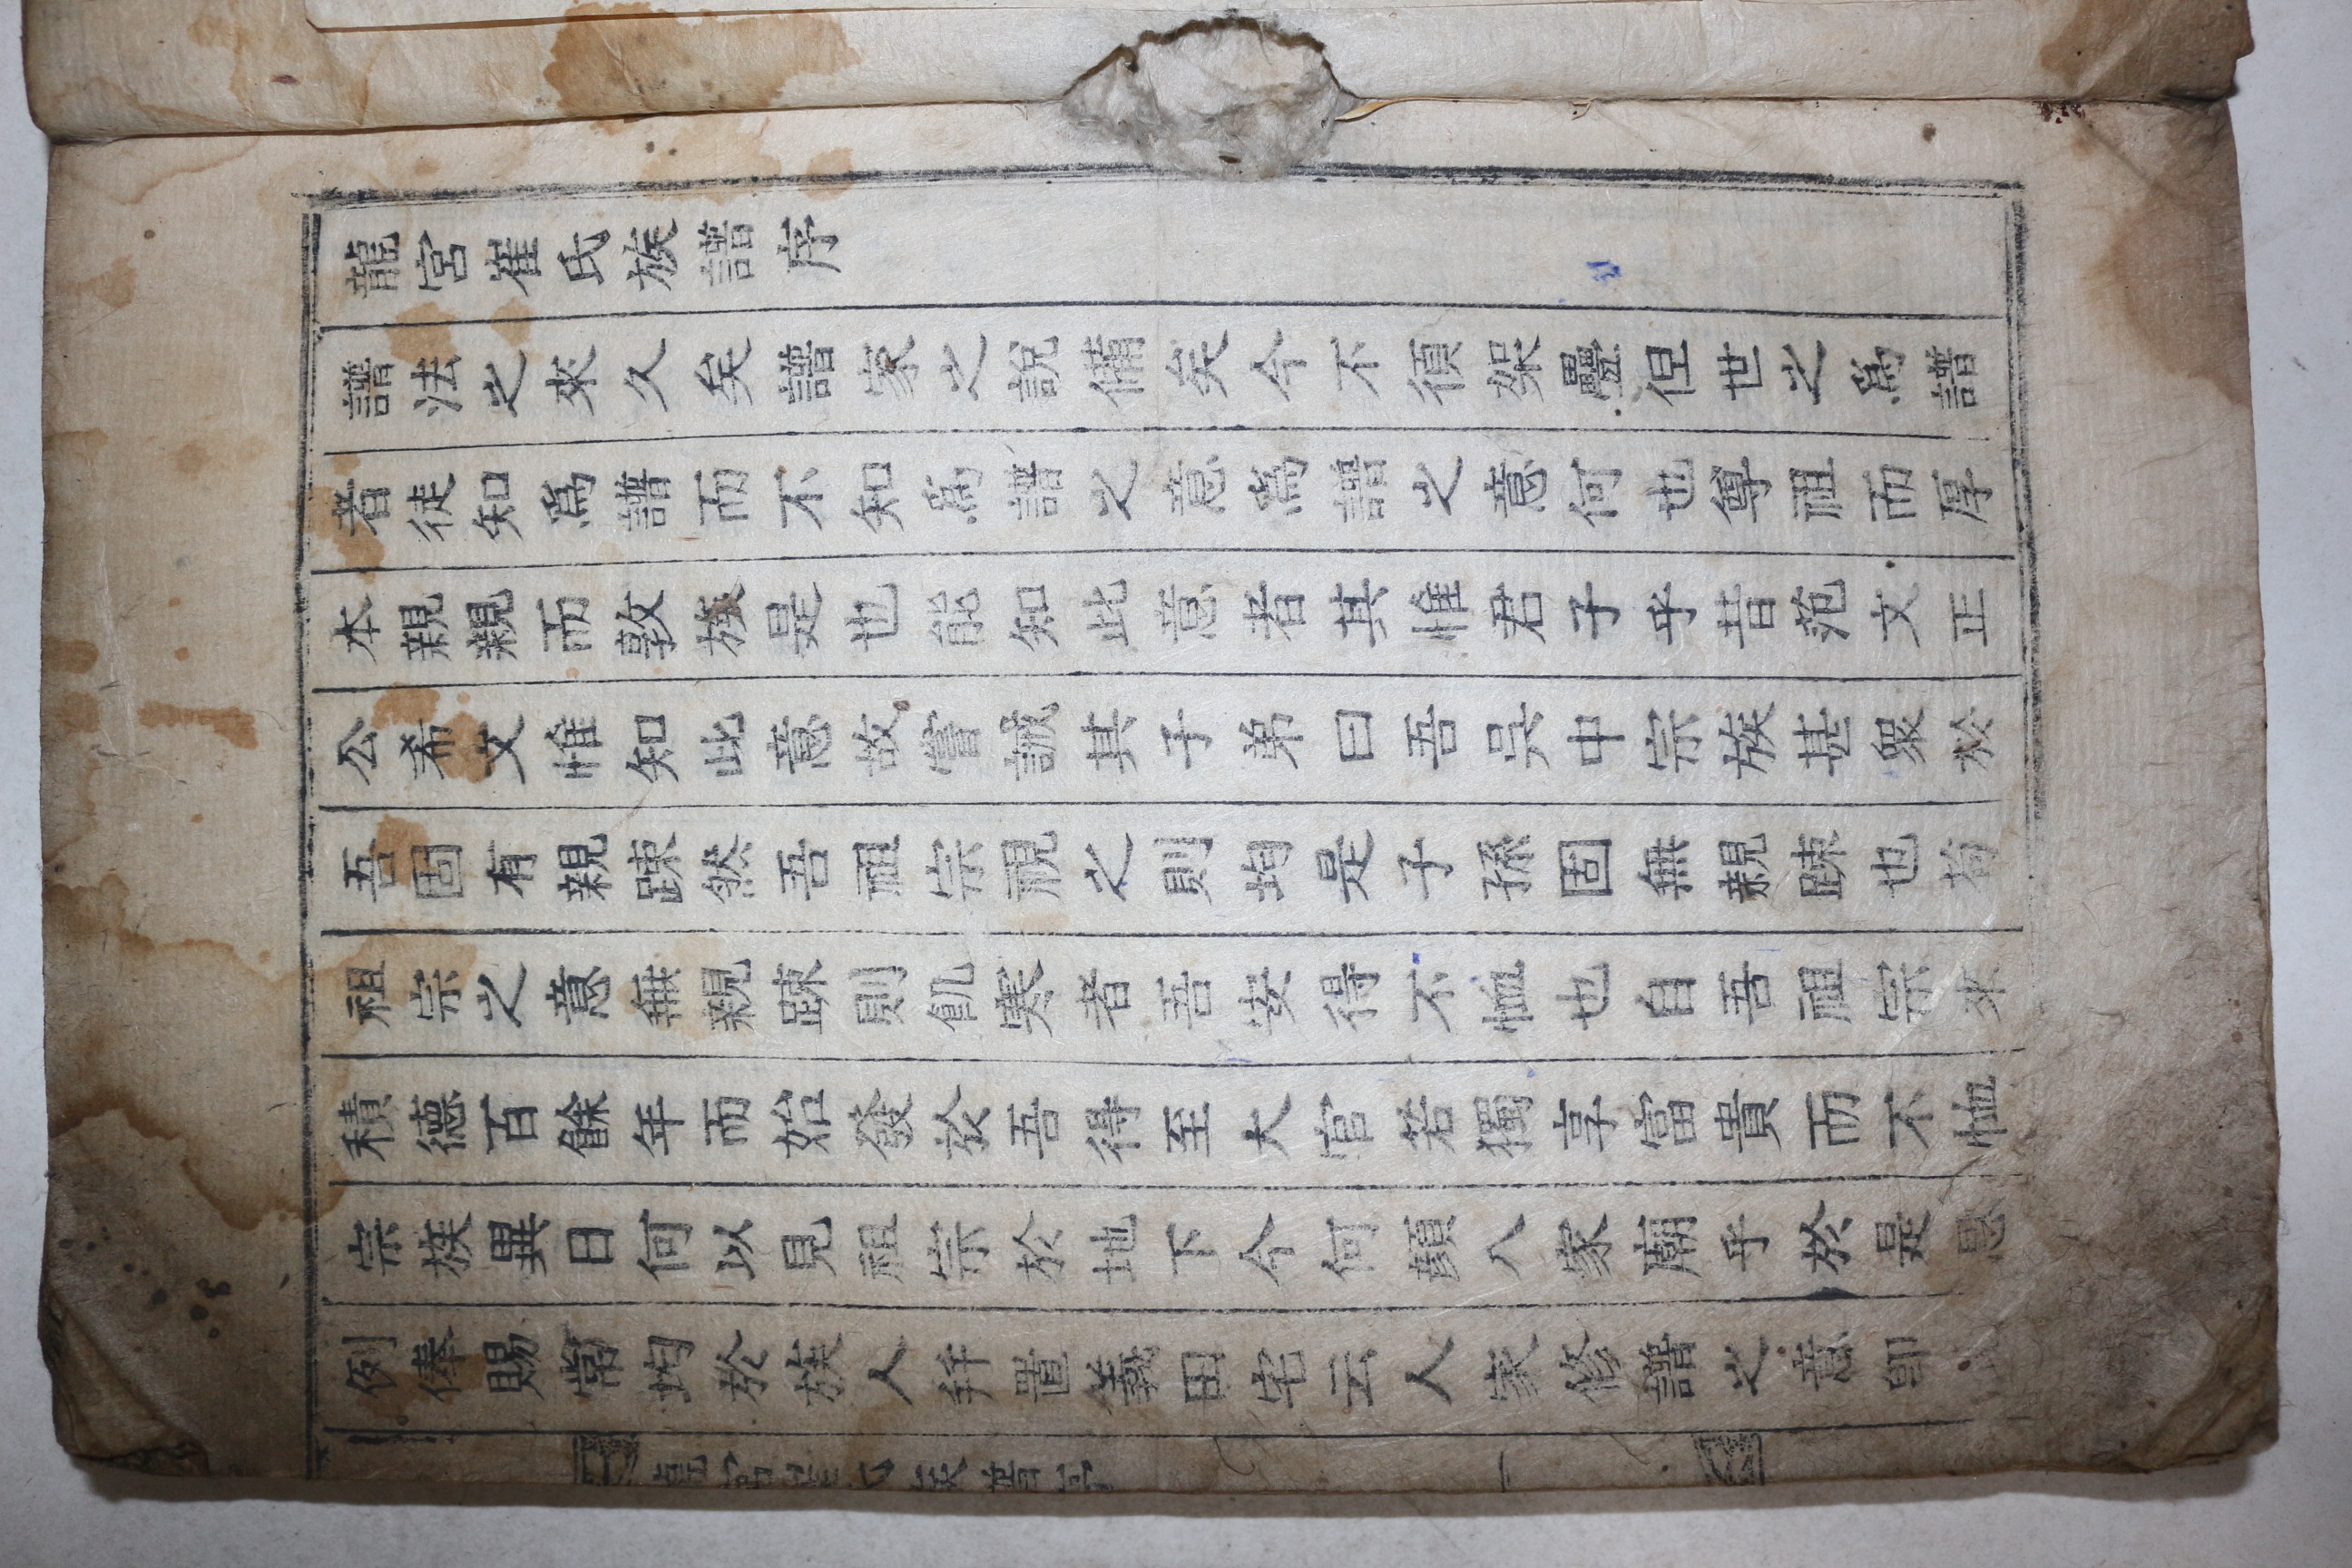 龍宮崔氏族譜序
譜法之來久矣譜家之說備矣今不須架疊但世之爲譜
者徒知爲譜而不知爲譜之意爲譜之意何也尊祖而厚
本親親而敦族是也能知此意者其惟君子乎昔范文正
公希文惟知此意故嘗誡其子弟曰吾吳中宗族甚衆於
吾固有親踈然吾祖宗視之則均是子孫固無親踈也苟
祖宗之意無親踈則飢寒者吾安得不恤也自吾祖宗來
積德百餘年而始發於吾得至大官若獨享富貴而不恤
宗族異日何以見祖宗於地下今何顔入家廟乎於是恩
例俸賜常均於族人幷置義田宅云人家修譜之意卽
龍宮崔氏族譜序 一